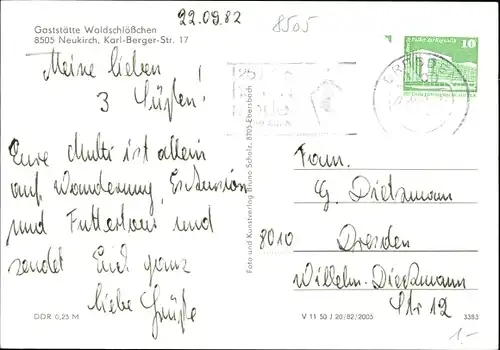 22.09.82
8505
Gaststätte Waldschlößchen
8505 Neukirch, Karl-Berger-Str. 17
Meine lieben
3 Süßen!
Eure Mutti ist allein
auf Wanderung, Exkursion
und Futtertour und
sendet Euch ganz
liebe Grüße
DDR 0,25 M
Foto und Kunstverlag Bruno Scholz, 8705 Ebersbach
10
DRESDEN
Fam.
G. Dietzmann
8010 Dresden
Wilhelm-Dießmann
Str 12
V 11 50 J 20/82/2005
3383
1.-